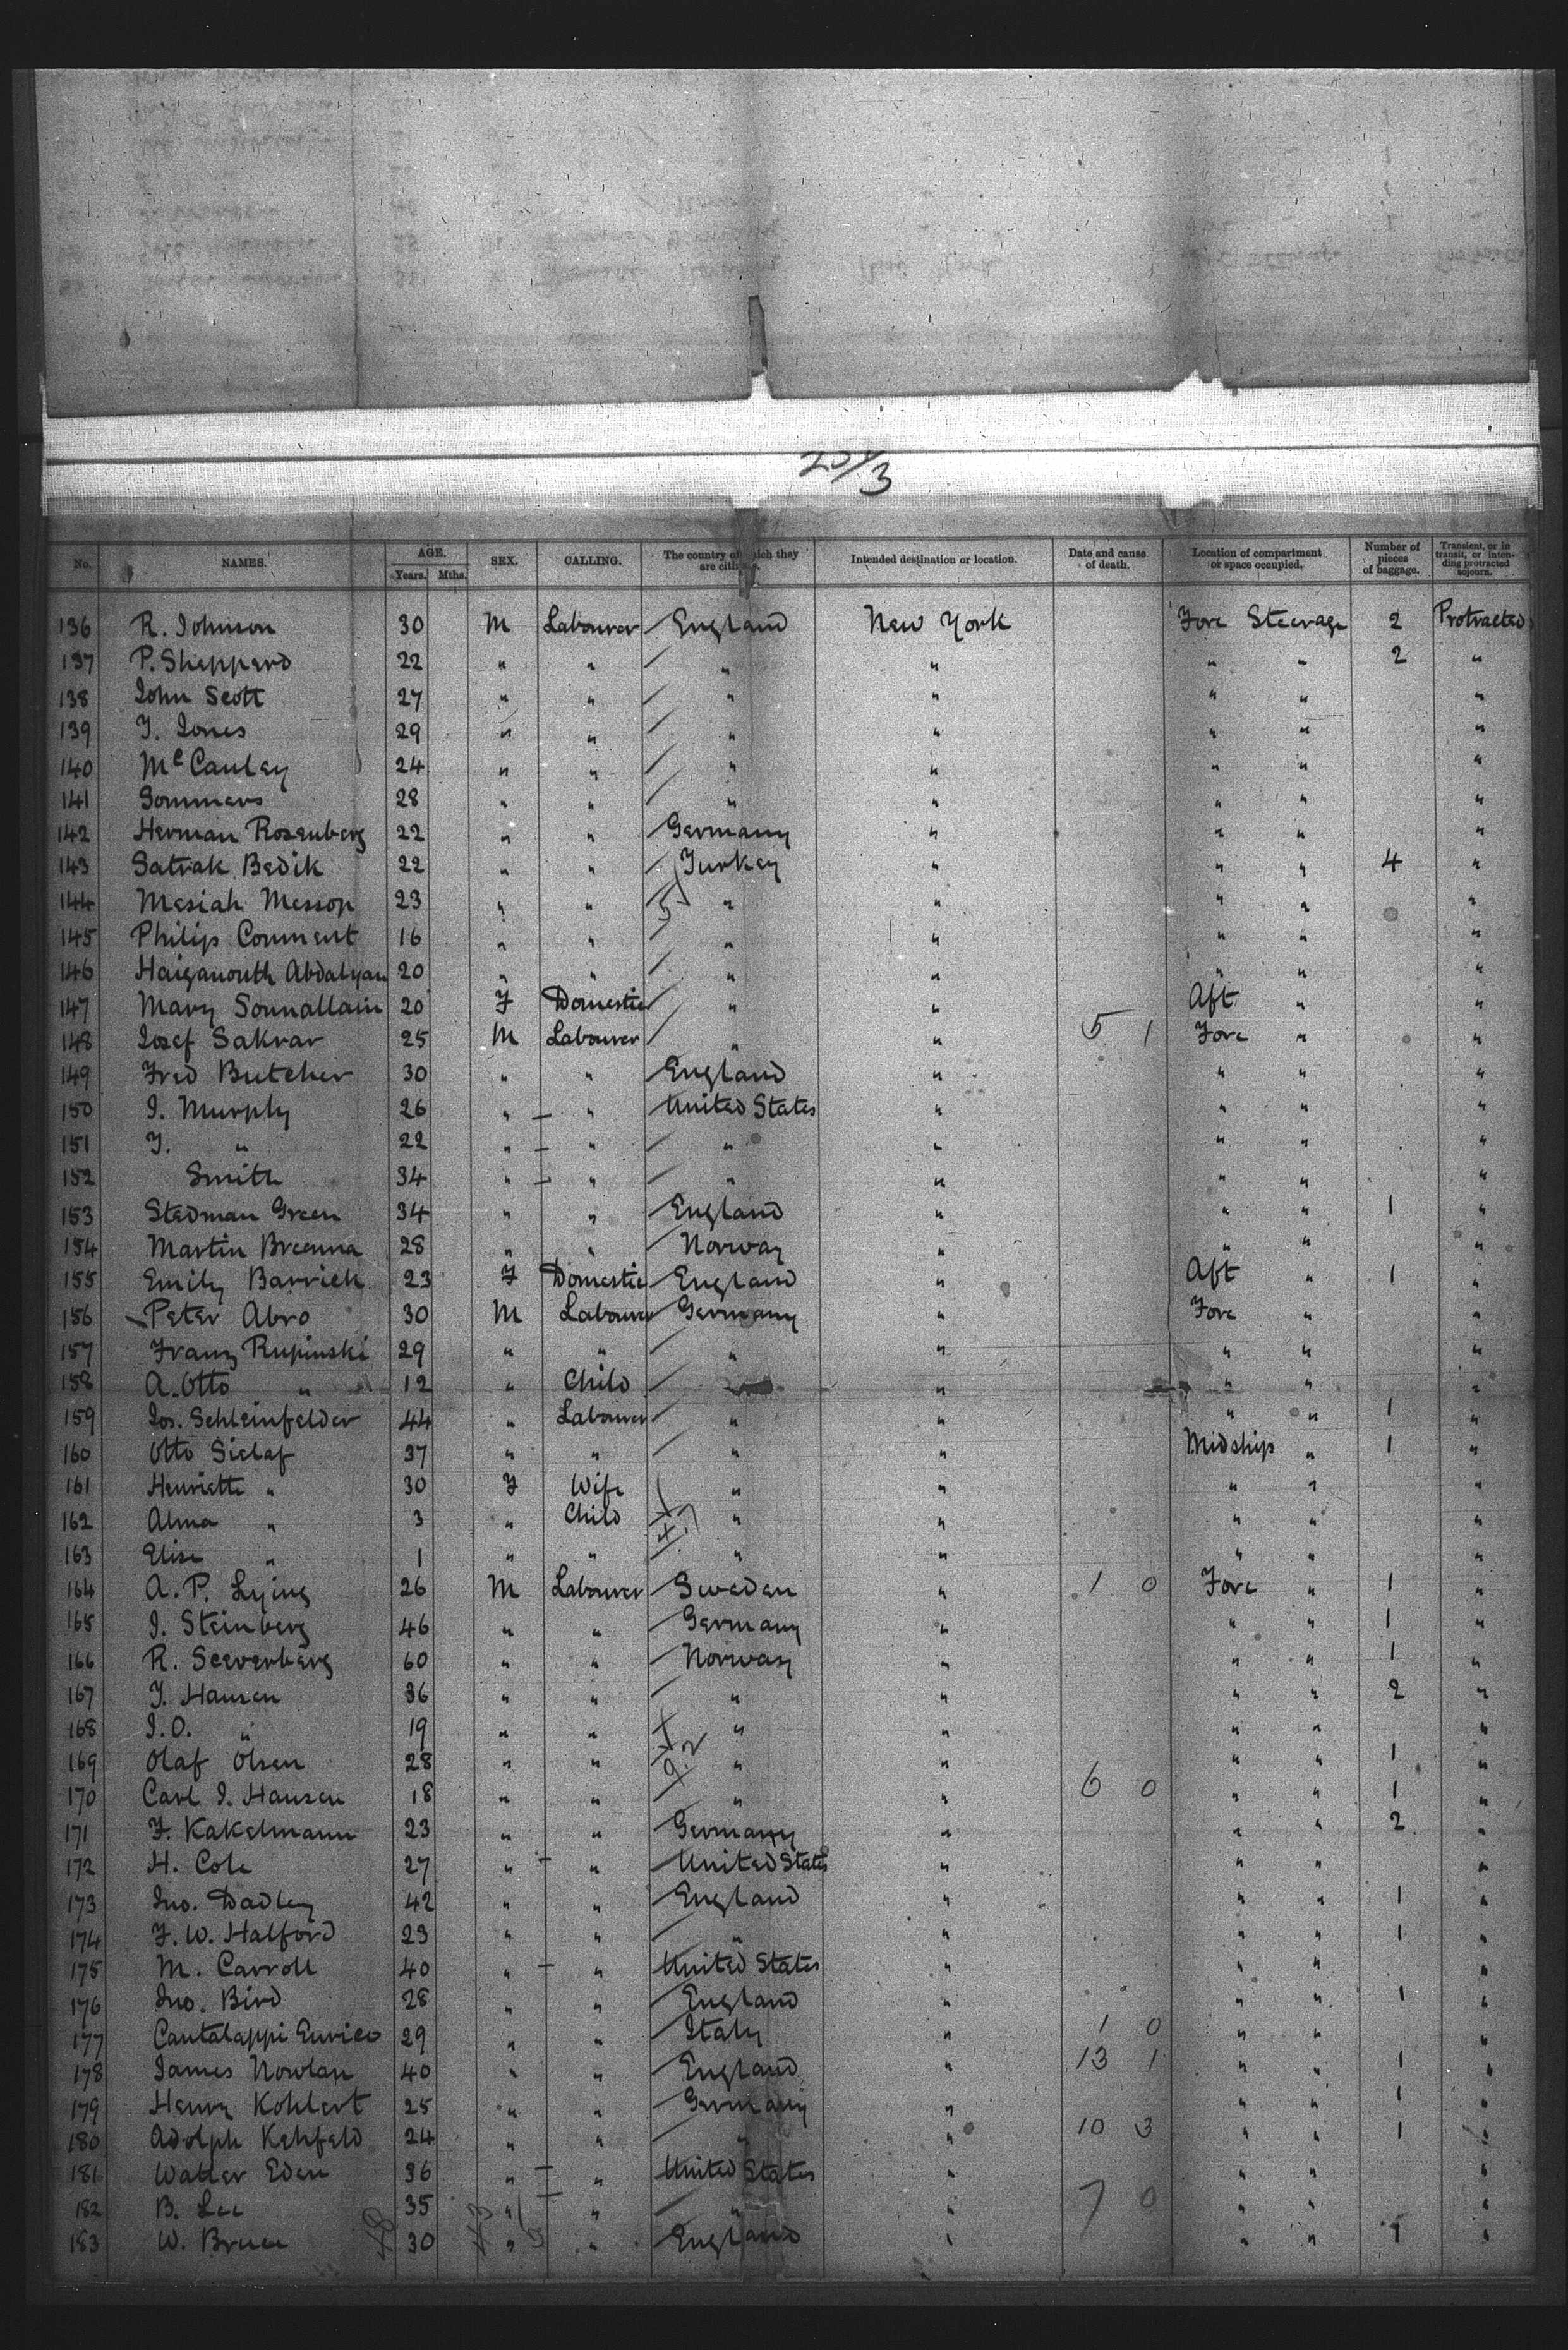 3
No. NAMES. AGE. Years. Mths. SEX. CALLING. The country of which they are citizens. Intended destination or location. Date and cause of death. Location of compartment or space occupied. Number of pieces of baggage. Transient, or in transit, or intending protracted sojourn.
136 R. Johnson 30 M Labourer England New York Fore Steerage 2 Protracted
137 P. Sheppard 22 " " " " " " 2 "
138 John Scott 27 " " " " " " "
139 T. Jones 29 " " " " " " "
140 McCauley 24 " " " " " " "
141 Sommers 28 " " " " " " "
142 Herman Rosenberg 22 " " Germany " " " "
143 Satrak Bedik 22 " " Turkey " " " 4 "
144 Mesiah Messop 23 " " " " " " "
145 Philip Comment 16 " " " " " " "
146 Haiganouth Abdalyan 20 " " " " " " "
147 Mary Sonnallain 20 F Domestic " " Aft " "
148 Josef Sakrar 25 M Labourer " " 5 1 Fore " "
149 Fred Butcher 30 " " England " " " "
150 J. Murphy 26 " " United States " " " "
151 T. " 22 " " " " " " "
152 Smith 34 " " " " " " "
153 Stedman Green 34 " " England " " " 1 "
154 Martin Breenna 28 " " Norway " " " "
155 Emily Barrich 23 F Domestic England " Aft " 1 "
156 Peter Abro 30 M Labourer Germany " Fore " "
157 Franz Rupinski 29 " " " " " " "
158 A. Otto " 12 " Child " " " "
159 Jos. Schleinfelder 44 " Labourer " " " " 1 "
160 Otto Sielaf 37 " " " " Midship " 1 "
161 Henriette " 30 F Wife " " " " "
162 Alma " 3 " Child " " " " "
163 Elise " 1 " " " " " " "
164 A. P. Lying 26 M Labourer Sweden " 1 0 Fore " 1 "
165 J. Steinberg 46 " " Germany " " " 1 "
166 R. Seeverberg 60 " " Norway " " " 1 "
167 T. Hansen 36 " " " " " " 2 "
168 J. O. " 19 " " " " " " "
169 Olaf Olsen 28 " " " " " " 1 "
170 Carl J. Hansen 18 " " " " 6 0 " " 1 "
171 F. Kakelmann 23 " " Germany " " " 2 "
172 H. Cole 27 " " United States " " " "
173 Jno. Dadley 42 " " England " " " 1 "
174 F. W. Halford 23 " " " " " " 1 "
175 M. Carroll 40 " " United States " " " "
176 Jno. Bird 28 " " England " " " 1 "
177 Cantalappi Enrico 29 " " Italy " 1 0 " " "
178 James Nowlan 40 " " England " 13 1 " " 1 "
179 Henry Kohlert 25 " " Germany " " " 1 "
180 Adolph Kehfeld 24 " " " " 10 3 " " 1 "
181 Walter Eden 36 " " United States " " " "
182 B. Lee 35 " " " " 7 0 " " "
183 W. Bruce 30 " " England " " " 1 "